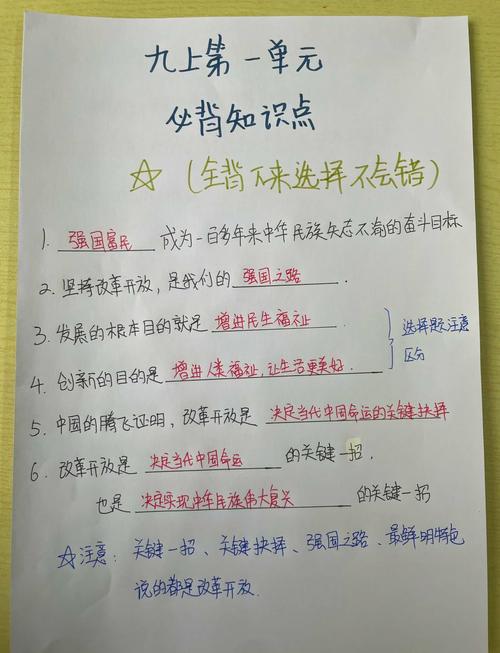 九上第一单元
必背知识点
☆(全背下来选择不会错)
1. 强国富民 成为一百多年来中华民族矢志不渝的奋斗目标
2. 坚持改革开放,是我们的 强国之路.
3. 发展的根本目的就是 增进民生福祉
4. 创新的目的是 增进人类福祉,让生活更美好.
选择题注意
区分
5. 中国的腾飞证明,改革开放是 决定当代中国命运的关键抉择
6. 改革开放是 决定当代中国命运 的关键一招,
也是 决定实现中华民族伟大复兴 的关键一招
☆注意: 关键一招、关键抉择、强国之路、最鲜明特色
说的都是改革开放.